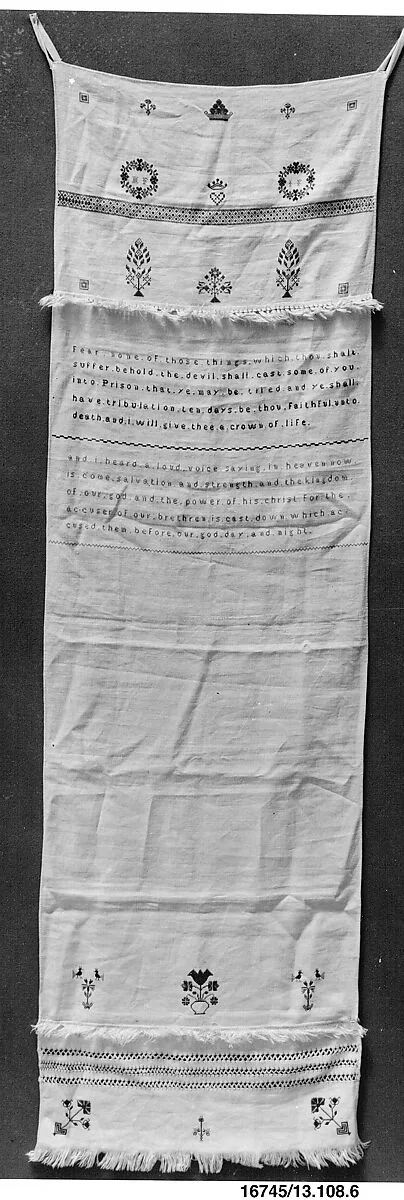 Fear.some.of.those.things.which.thou.shalt.
suffer.behold.the.devil.shall.cast.some.of.you.
into.Prison.that.ye.may.be.tried.and.ye.shall.
have.tribulation.ten.days.be.thou.Faithful.unto.
death.and.i.will.give.thee.a.crown.of.life.
and.i.heard.a.loud.voice.saying.in.heaven.now.
is.come.salvation.and.strength.and.the.kingdom.
of.our.god.and.the.power.of.his.christ.For.the.
accuser.of.our.brethren.is.cast.down.which.ac-
cused.them.before.our.god.day.and.night.
16745/13.108.6